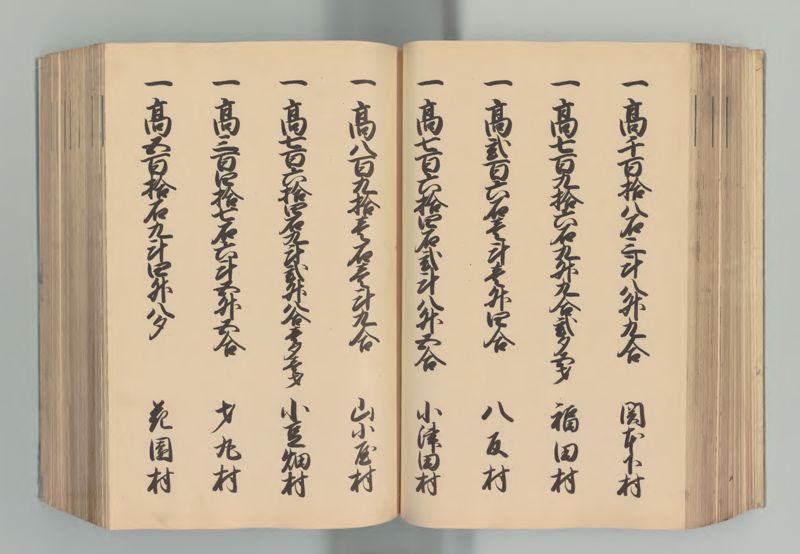 一 高千百拾八石二斗八升九合 関本下村
一 高七百九拾六石九升九合弐夕壱才 福田村
一 高弐百六石壱斗壱升四合 八反村
一 高七百六拾四石弐斗八升五合 小津田村
一 高八百九拾壱石壱斗九合 山小屋村
一 高七百六拾四石九斗弐升八合壱夕壱才 小豆畑村
一 高三百四拾七石六斗五升五合 才丸村
一 高五百拾石九斗四升八夕 花園村